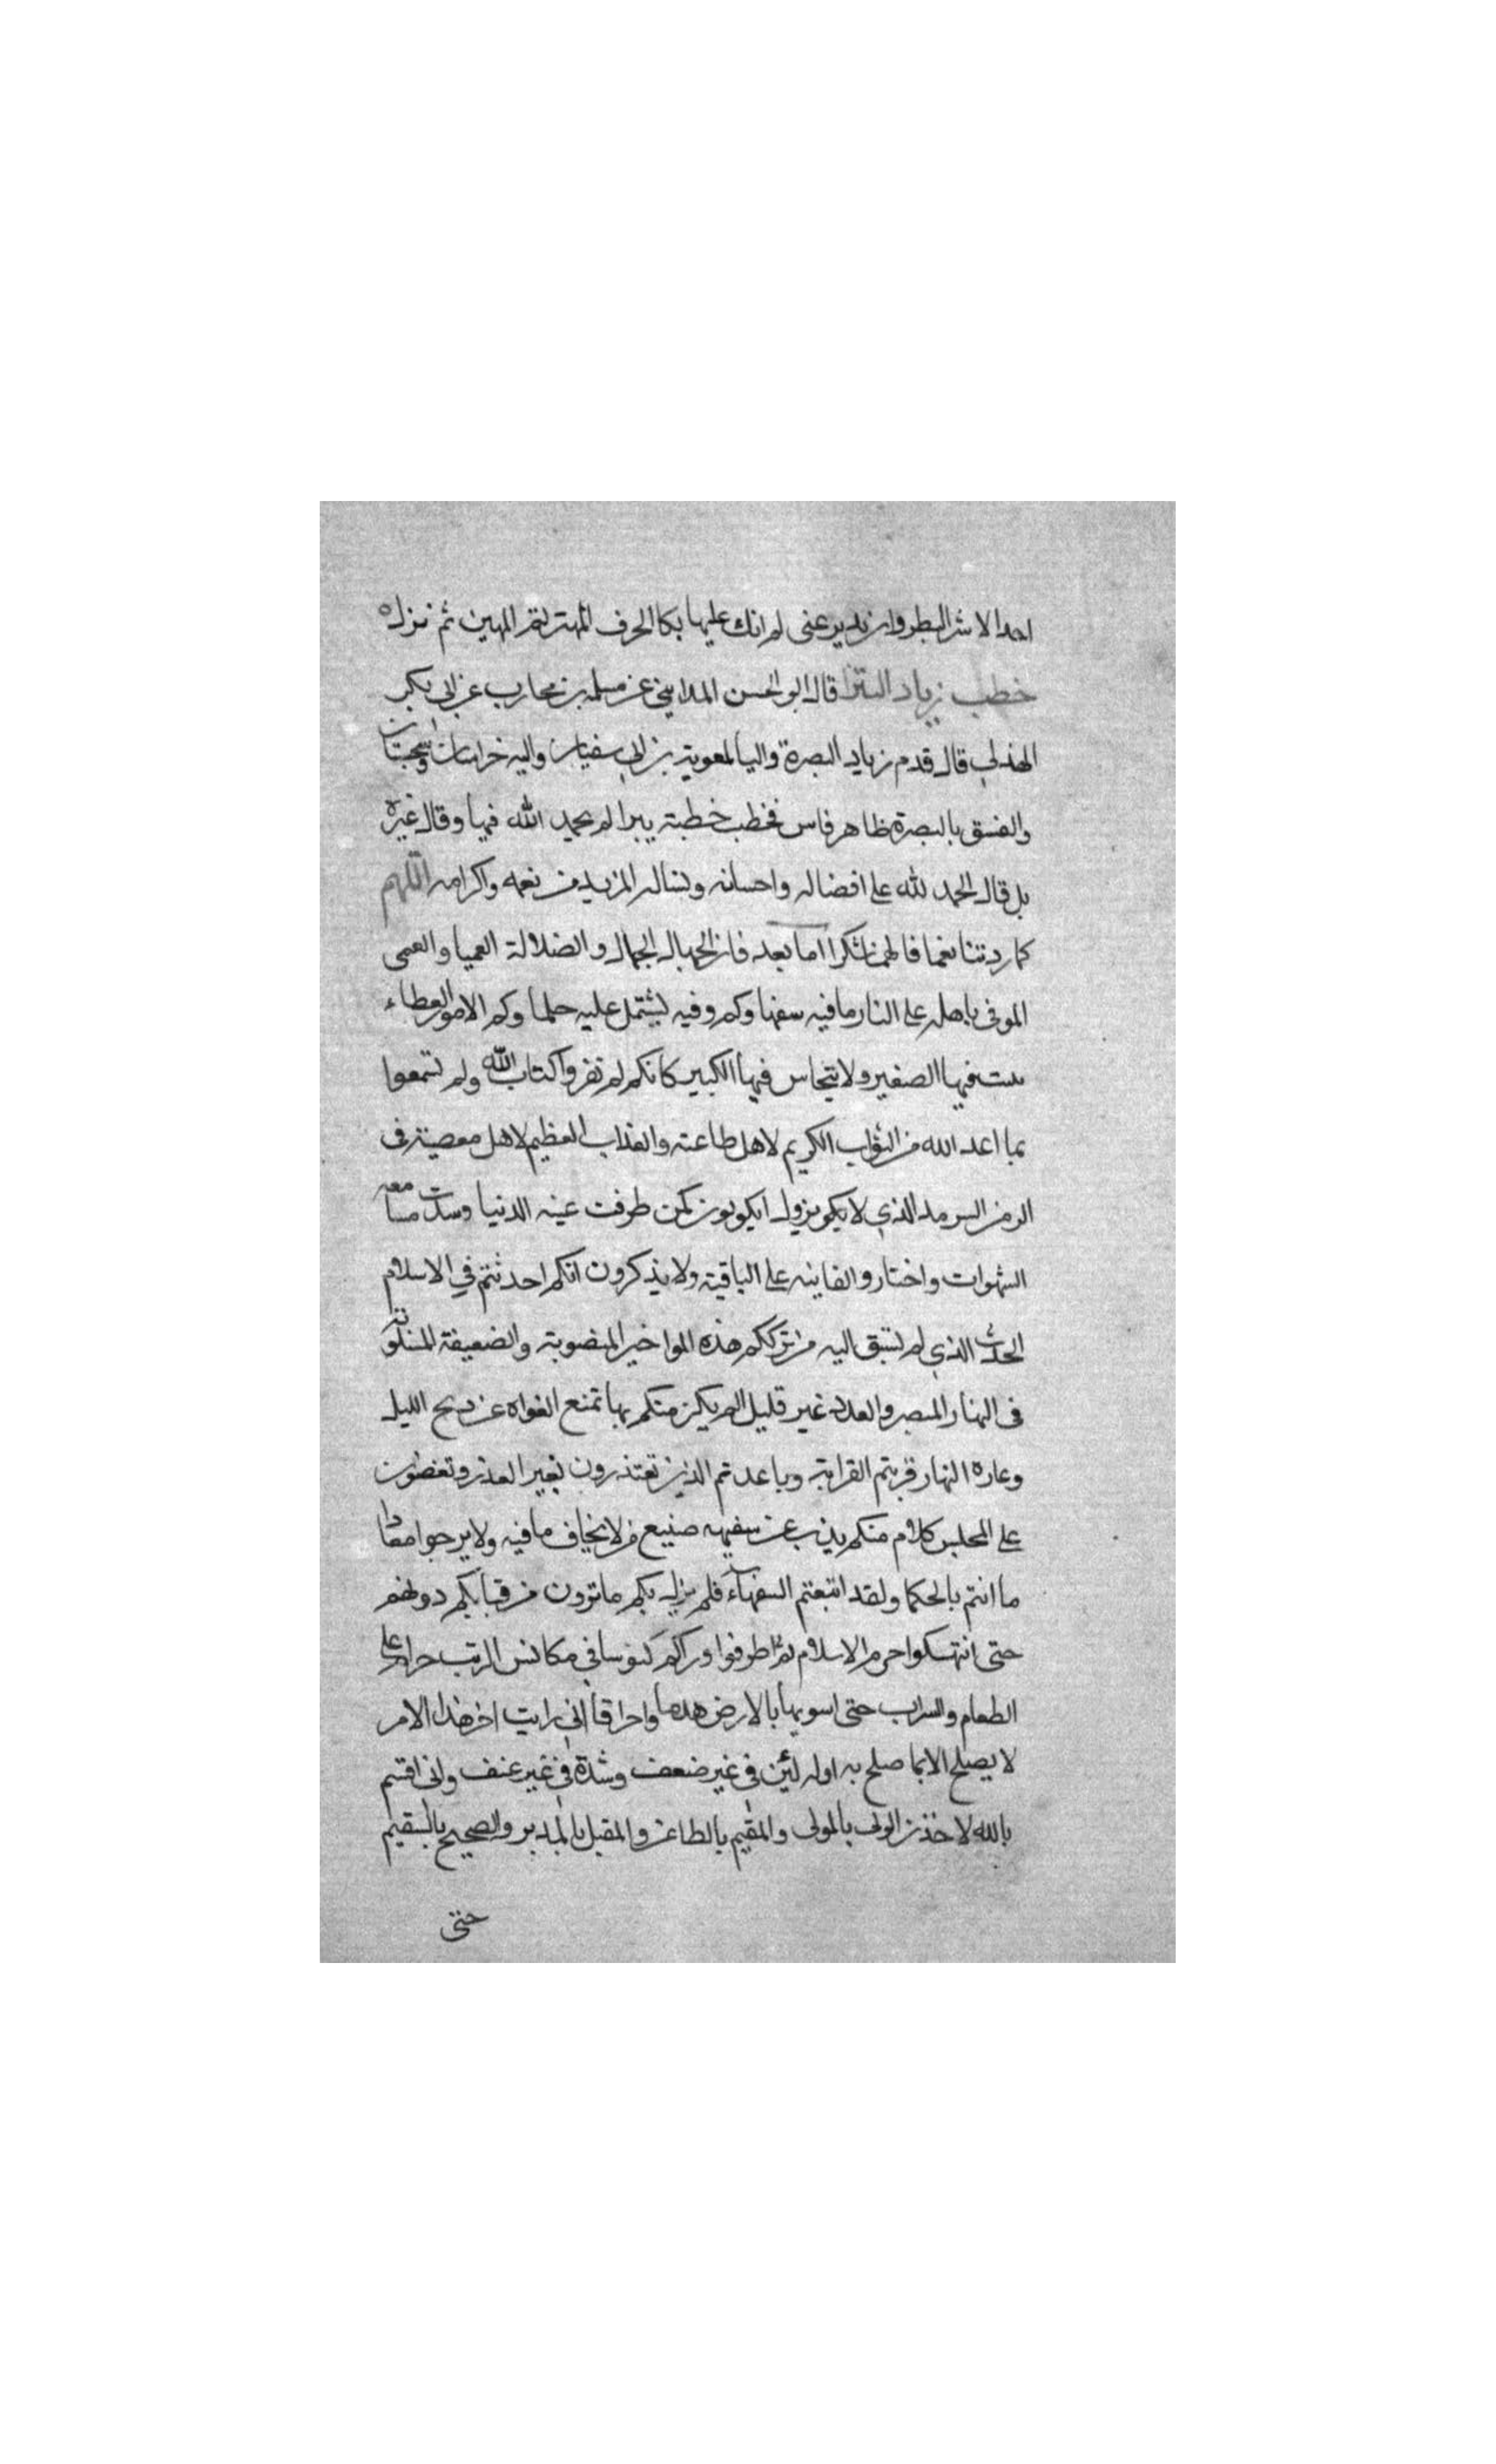 احدا الاشر البطر وان يدير عنى لم انك عليها بكا الحرف المهتر لتمر المهين ثم نزل
خطب زياد البترا قال ابو الحسن المدايني عن مسلمه بن محارب عن ابي بكر
الهذلي قال قدم زياد البصرة واليا لمعوية بن ابي سفيان واليه خراسان وسجستان
والفسق بالبصرة ظاهر فاس فخطب خطبة بترا لم يحمد الله فيها وقال غيره
بل قال الحمد لله على افضاله واحسانه ونساله المزيد من نعمه واكرامه اللهم
كما زدتنا نعما فالهمنا شكرا اما بعد فان الجهالة الجهلا والضلالة العميا والعمى
الموفى باهله على النار ما فيه سفهاوكم وفيه يشتمل عليه حلماوكم الامور العظاء
ينبت فيها الصغير ولا يتحاس فيها الكبير كانكم لم تقروا كتاب الله ولم تسمعوا
بما اعد الله من الثواب الكريم لاهل طاعته والعذاب العظيم لاهل معصيته في
الزمن السرمد الذي لا يزول ايكونون كمن طرفت عينه الدنيا وسدت مسامعه
الشهوات واختار والفانيه على الباقية ولا يذكرون انكم احدثتم في الاسلام
الحدث الذي لم تسبق اليه من ترككم هذه المواخير المنصوبة والضعيفة المسلوبة
في النهار المبصر والعدد غير قليل الم يكن منكم نهاة تمنع الغواه عن دبح الليل
وغارة النهار قربتم القرابة وباعدتم الدين تعتذرون بغير العذر وتغضون
على المختلس كلام منكم يذب عن سفيهه صنيع من لا يخاف ما فيه ولا يرجوا معادا
ما انتم بالحكما ولقد اتبعتم السفهاء فلم يزل بكم ما ترون من قيامكم دونهم
حتى انتهكوا حرم الاسلام ثم اطرقوا وراكم كنوسا في مكانس الريب حرام على
الطعام والشراب حتى اسويها بالارض هدما واحراقا اني رايت اخر هذا الامر
لا يصلح الا بما صلح به اوله لين في غير ضعف وشدة في غير عنف واني اقسم
بالله لاخذن الولي بالمولى والمقيم بالظاعن والمقبل بالمدبر والصحيح بالسقيم
حتى